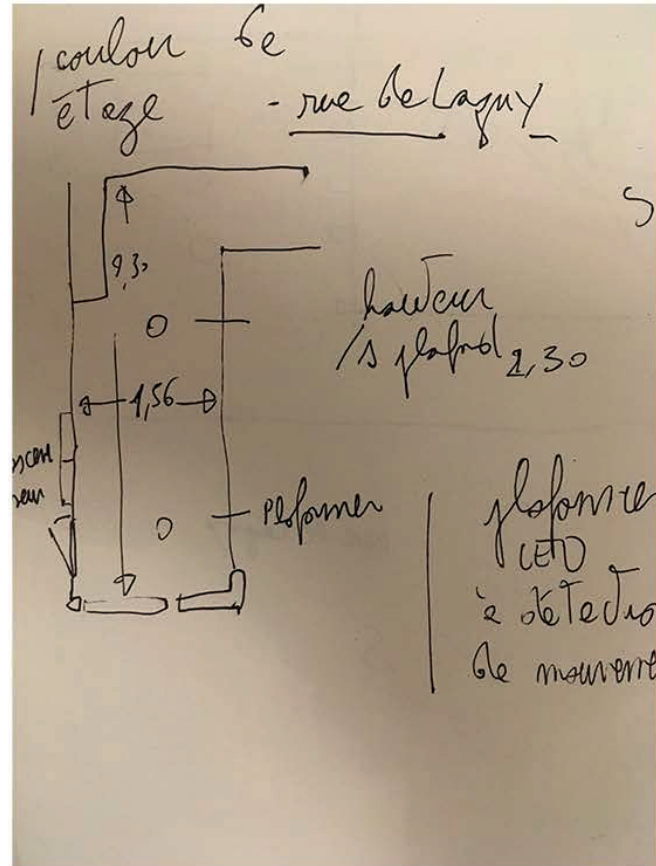 couloir 6e
étage - rue de Lagny
9,30
hauteur
/s plafond 2,30
1,56
plafonnier
plafonnier
LED
à détectio
de mouveme